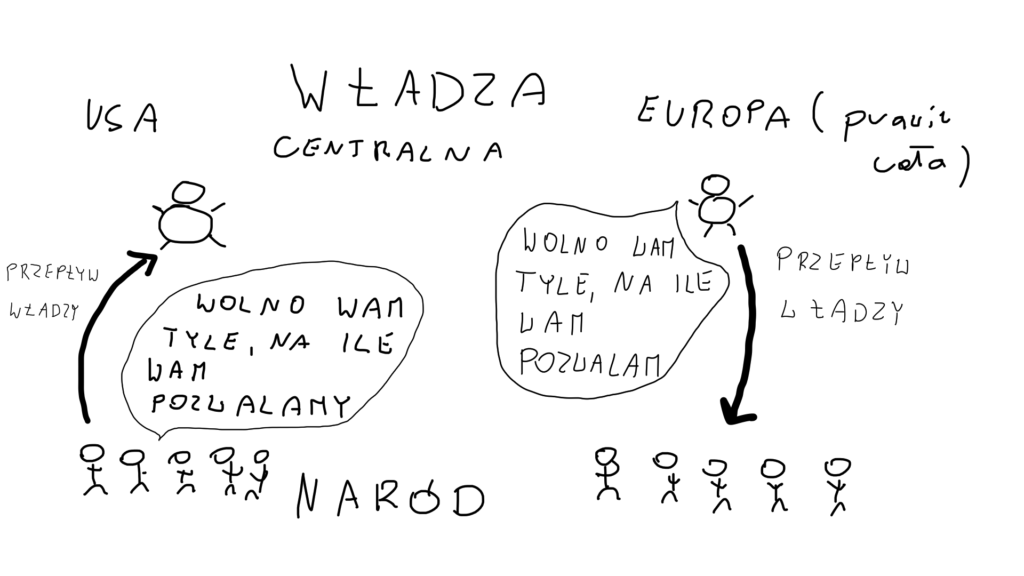 USA
WŁADZA
CENTRALNA
EUROPA (prawie
cała)
PRZEPŁYW
WŁADZY
WOLNO WAM
TYLE, NA ILE
WAM
POZWALAMY
WOLNO WAM
TYLE, NA ILE
WAM
POZWALAM
PRZEPŁYW
WŁADZY
NARÓD